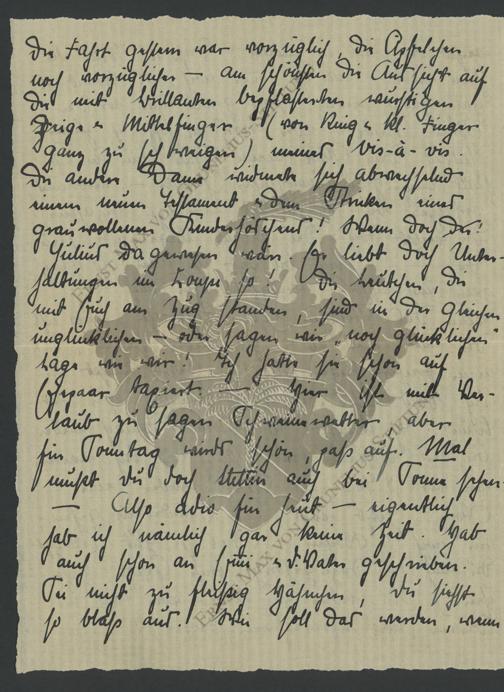 Die Fahrt gestern war vorzüglich, die Äpfelchen
noch vorzüglicher – am schönsten die Aussicht auf
die mit Brillanten bepflasterten wurstigen
Zeige u Mittelfinger (von Ring u kl. Finger
ganz zu schweigen) meines vis-à-vis.
Die andere Dame widmete sich abwechselnd
einem neuen Testament u dem Stricken eines
grauwollenen Kinderhöschens! Wenn doch der
Julius da gewesen wäre. Er liebt doch Unter-
haltungen im Coupe so! Die Leutchen, die
mit Euch am Zug standen, sind in der gleichen
unglücklichen – oder sagen wir "noch glücklichen"
Lage wie wir! Ich hatte sie schon auf
Ehepaar tapiert. – Hier ist mit Ver-
laub zu sagen Schweinewetter aber
für Sonntag wirds schön, paß auf. Mal
mußt du doch Stettin auch bei Sonne sehen.
– Also adio für heut – eigentlich
hab ich nämlich gar keine Zeit. Hab
auch schon an u d. Vater geschrieben.
Sei nicht zu fleißig Häschen, du siehst
so blaß aus. Wie soll das werden, wenn